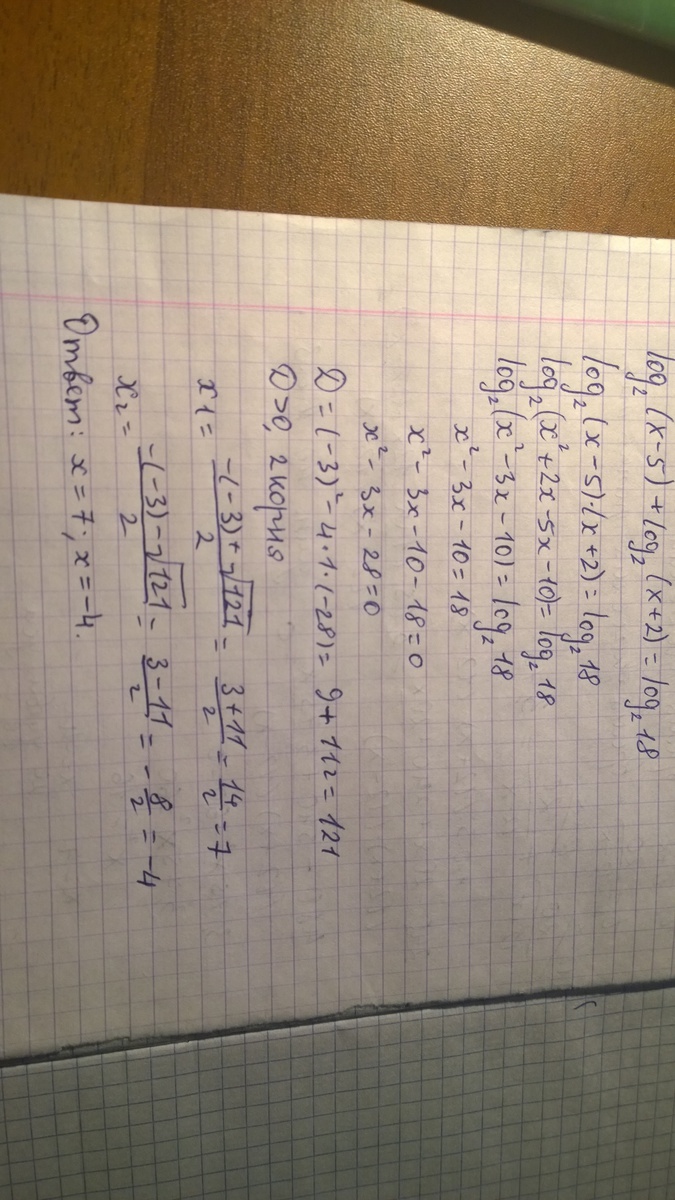 log₂(x-5)+log₂(x+2)=log₂18
log₂(x-5)·(x+2)=log₂18
log₂(x²+2x-5x-10)=log₂18
log₂(x²-3x-10)=log₂18
x²-3x-10=18
x²-3x-10-18=0
x²-3x-28=0
D=(-3)²-4·1·(-28)=9+112=121
D>0, 2 корня
x₁=(-(-3)+√121)/2=(3+11)/2=14/2=7
x₂=(-(-3)-√121)/2=(3-11)/2=-8/2=-4
Ответ: x=7; x=-4.